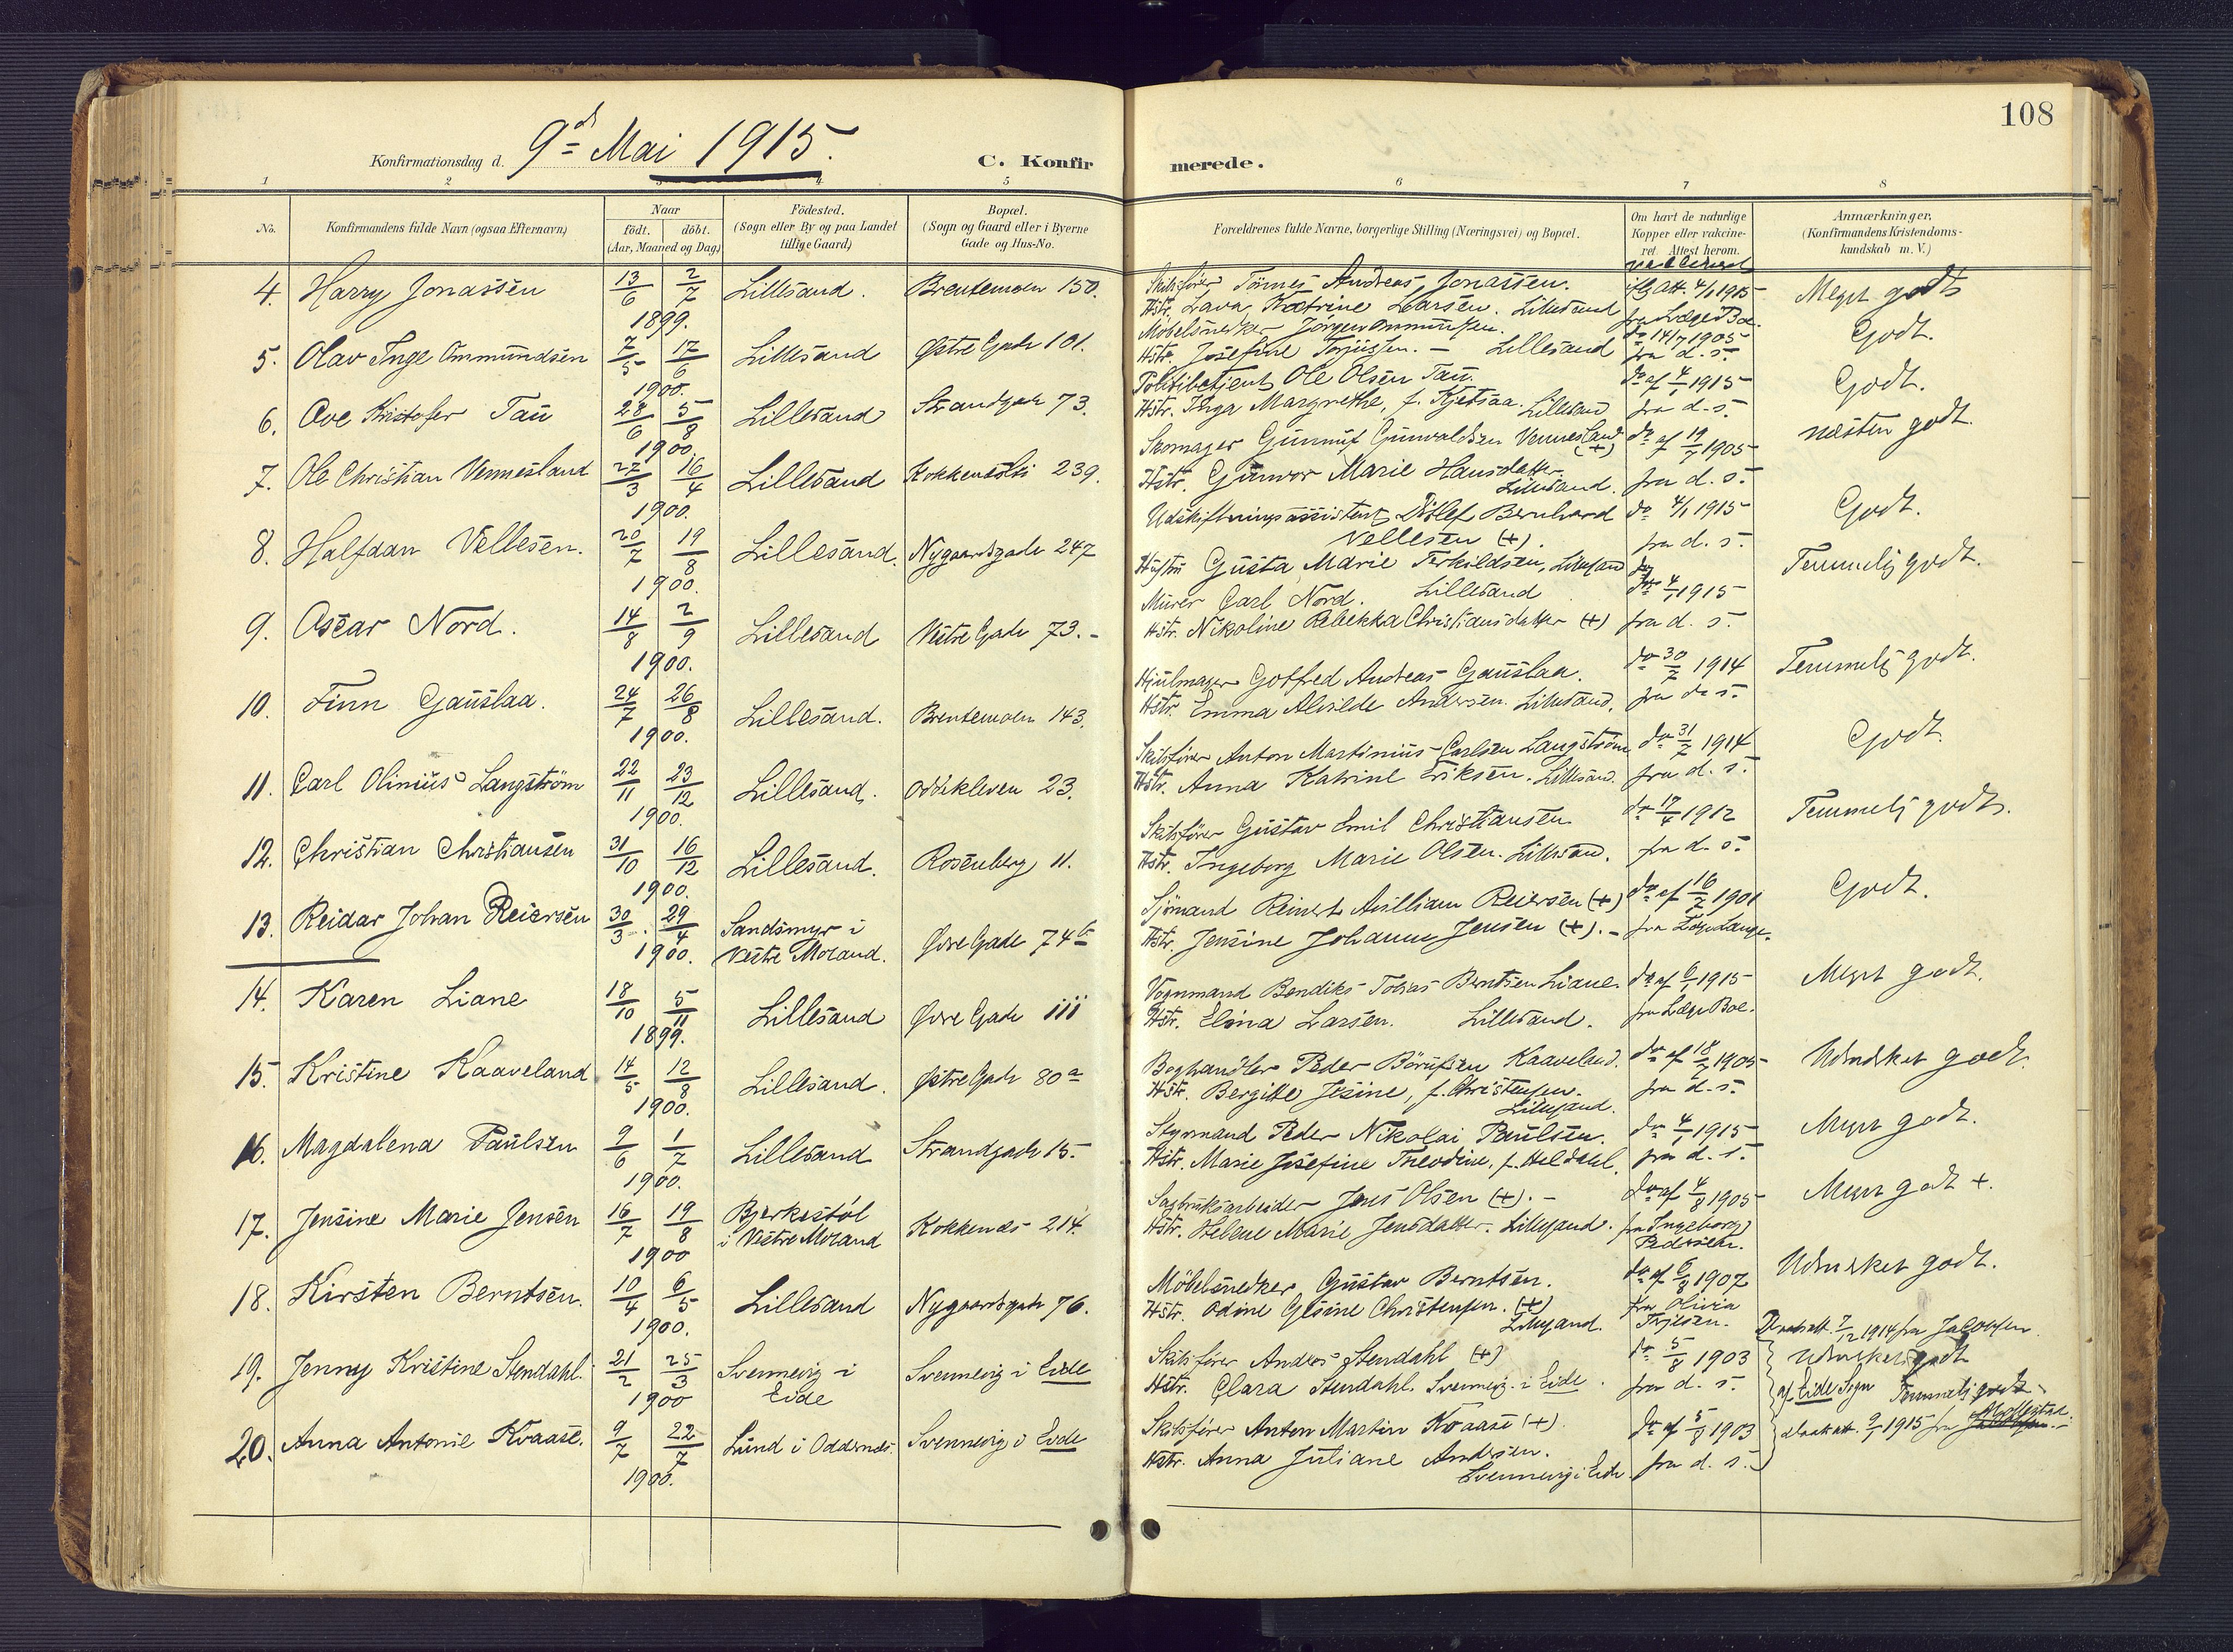 108
Konfirmationsdag d. 9d Mai 1915.
C. Konfirmerede.
1 2 3 4 5 6 7 8
No.
Konfirmandens fulde Navn (ogsaa Efternavn)
Naar
födt. döbt.
(Aar, Maaned og Dag)
Födested.
(Sogn eller By og paa Landet
tillige Gaard)
Bopæl.
(Sogn og Gaard eller i Byerne
Gade og Hus-No.
Forældrenes fulde Navne, borgerlige Stilling (Næringsvei) og Bopæl.
Om havt de naturlige
Kopper eller vakcine-
ret. Attest herom.
Anmærkninger,
(Konfirmandens Kristendoms-
kundskab m. V.)
4. Harry Jonassen 13/6 2/7 1899. Lillesand. Brentemoen 150.
Skibsfører Tönnes Andreas Jonassen.
Hstr. Lava Katrine Larsen. Lillesand
iflg att. 4/1 1915
fra Læge Boe.
Meget godt
5. Olav Inge Ommundsen 7/5 17/6 1900. Lillesand Østre Gade 101.
Möbelsnedker Jörgen Ommundsen.
Hstr. Josefine Torjussen. – Lillesand
do 14/7 1905
fra d. s.
Godt.
6. Ove Kristofer Tau 28/6 5/8 1900. Lillesand Strandgade 73.
Politibetjent Ole Olsen Tau.
Hstr. Inga Margrethe, f. Kjetsaa. Lillesand
do af 4/1 1915
fra d. s.
Godt.
7. Ole Christian Vennesland 27/3 16/4 1900. Lillesand 239.
Skomager Gunnuf Gunvaldsen Vennesland (+)
Hstr. Gunvor Marie Hansdatter
Lillesand.
do af 19/7 1905
fra d. s.
næsten godt.
8. Halfdan Vellesen. 20/7 19/8 1900. Lillesand. Nygaardsgade 247
Udskiftningsassistent Ditlef Bernhard
Vellesen (+).
Hustru Gusta Marie Terkildsen, Lillesand
do 4/1 1915
fra d. s.
Godt.
9. Oscar Nord. 14/8 2/9 1900. Lillesand Vestre Gade 73.-
Murer Carl Nord. Lillesand
Hstr. Nikoline Rebekka Christiansdatter (+)
do 4/1 1915
fra d. s.
Temmelig godt.
10. Finn Gauslaa. 24/7 26/8 1900. Lillesand. Brentemoen 143.
Hjulmager Gotfred Andreas Gauslaa.
Hstr. Emma Alvilde Andersen. Lillesand.
do 30/7 1914
fra d. s.
Temmelig godt.
11. Carl Olinius Langström 22/11 23/12 1900. Lillesand. Oddekleven 23.
Skibsfører Anton Martinius Carlsen Langström
Hstr. Anna Katrine Eriksen. Lillesand.
do 31/7 1914
fra d. s.
Godt.
12. Christian Christiansen 31/10 16/12 1900. Lillesand. Rosenberg 11.
Skibsfører Gustav Emil Christiansen
Hstr. Ingeborg Marie Olsen. Lillesand.
do 17/4 1912
fra d. s.
Temmelig godt.
13. Reidar Johan Reiersen 30/3 29/4 1900. Sandsmyr i Vestre Moland. Øvre Gade 74b
Sjömand Reinert William Reiersen (+)
Hstr. Jensine Johanne Jensen (+). –
do af 16/7 1901
fra Læge Lange.
Godt.
14. Karen Liane 18/10 5/11 1899. Lillesand Øvre Gade 111
Vognmand Bendiks Tobias Berntsen Liane.
Hstr. Elina Larsen. Lillesand.
do af 6/1 1915
fra Læge Boe.
Meget godt.
15. Kristine Kaaveland 14/5 12/8 1900. Lillesand. Østre Gade 80a
Boghandler Peder Börufsen Kaaveland.
Hstr. Bergitte Jesine, f. Christensen.
Lillesand.
do af 18/7 1905
fra d. s.
Udmerket godt.
16. Magdalena Paulsen 9/6 1/7 1900. Lillesand Strandgade 15.
Styrmand Peder Nikolai Paulsen.
Hstr. Marie Josefine Theodine, f. Heldahl.
do 4/1 1915
fra d. s.
Meget godt.
17. Jensine Marie Jensen 16/7 19/8 1900 Bjerkestöl i Vestre Moland Kokkenes 214.
Sagbruksarbeider Jens Olsen (+). –
Hstr. Helene Marie Jensdatter. Lillesand.
do af 4/8 1905
fra Ingeborg
Pedersen.
Meget godt +.
18. Kirsten Berntsen. 10/4 6/5 1900. Lillesand Nygaardsgade 76.
Möbelsnedker Gustav Berntsen.
Hstr. Odine Gesine Christensen. (+)
Lillesand.
do af 6/8 1907
fra Olivia
Terjesen.
Udmerket godt.
19. Jenny Kristine Stendahl. 21/2 25/3 1900 Svennevig i Eide Svennevig i Eide
Skibsfører Andreas Stendahl (+)
Hstr. Clara Stendahl. Svennevig i Eide.
do 5/8 1903
fra d. s.
Daabsatt. 7/12 1914 fra
Udmerket godt
20. Anna Antonie Kvaase. 9/7 22/7 1900. Lund i Oddernes. Svennevig i Eide
Skibsfører Anton Martin Kvaase (+).
Hstr. Anna Juliane Andersen.
Svennevig i Eide.
do af 5/8 1903
fra d. s.
af Eide Sogn Temmelig godt
Daabsatt. 9/1 1915 fra